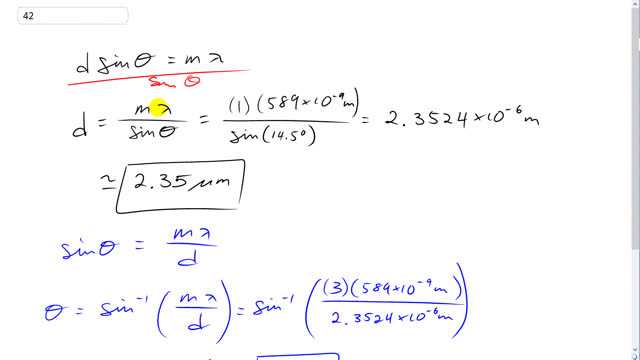 42
d sinθ = mλ
sin θ
d = mλ / sinθ = (1)(589×10⁻⁹m) / sin(14.5°) = 2.3524×10⁻⁶ m
≃ 2.35 μm
sinθ = mλ / d
θ = sin⁻¹ (mλ / d) = sin⁻¹ ((3)(589×10⁻⁹m) / 2.3524×10⁻⁶m)